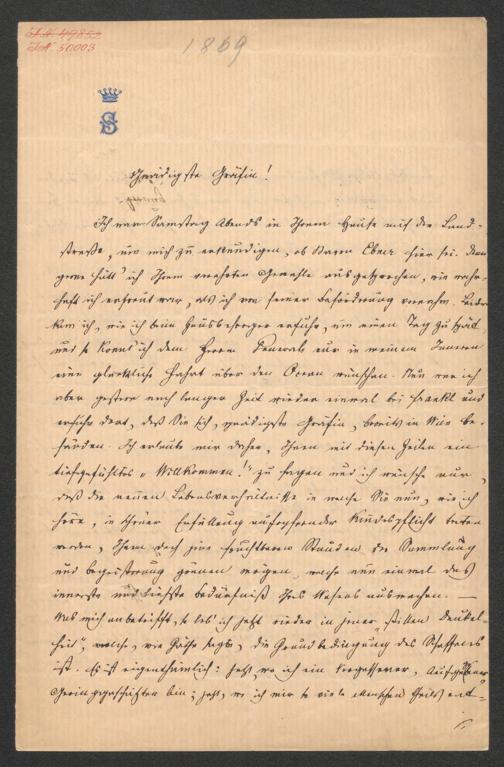 I.N. 49853
I.N. 50003
1869
S
Gnädigste Gräfin!
Ich war Samstag Abends in Ihrem Hause auf der Land-
straße, um mich zu erkundigen, ob Baron Ebner hier sei. Denn
gerne hätt' ich Ihrem verehrten Gemahle ausgesprochen, wie wahr-
haft ich erfreut war, als ich von seiner Beförderung vernahm. Leider
kam ich, wie ich beim Hausbesorger erfuhr, um einen Tag zu spät
und so konnt' ich dem Herrn General nur in meinem Inneren
eine glückliche Fahrt über den Ocean wünschen. Nun war ich
aber gestern nach langer Zeit wieder einmal bei Frankl und
erfuhr dort, daß Sie sich, gnädigste Gräfin, bereits in Wien be-
fänden. Ich erlaube mir daher, Ihnen mit diesen Zeilen ein
tiefgefühltes „Willkommen!" zu sagen und ich wünsche nur,
daß die neuen Lebensverhältnisse in welche Sie nun, wie ich
höre, in schöner Erfüllung aufopfernder Kindespflicht treten
werden, Ihnen doch jene fruchtbaren Stunden der Sammlung
und Begeisterung gönnen mögen, welche nun einmal das
innerste und tiefste Bedürfniß Ihres Wesens ausmachen. —
Was mich anbetrifft, so leb' ich jetzt wieder in jener „stillen Dunkel-
heit", welche, wie Göthe sagt, die Grundbedingung des Schaffens
ist. Es ist eigenthümlich: jetzt, wo ich ein Vergessener,
Geringgeschätzter bin; jetzt, wo ich mir so viele Menschen theils ent-